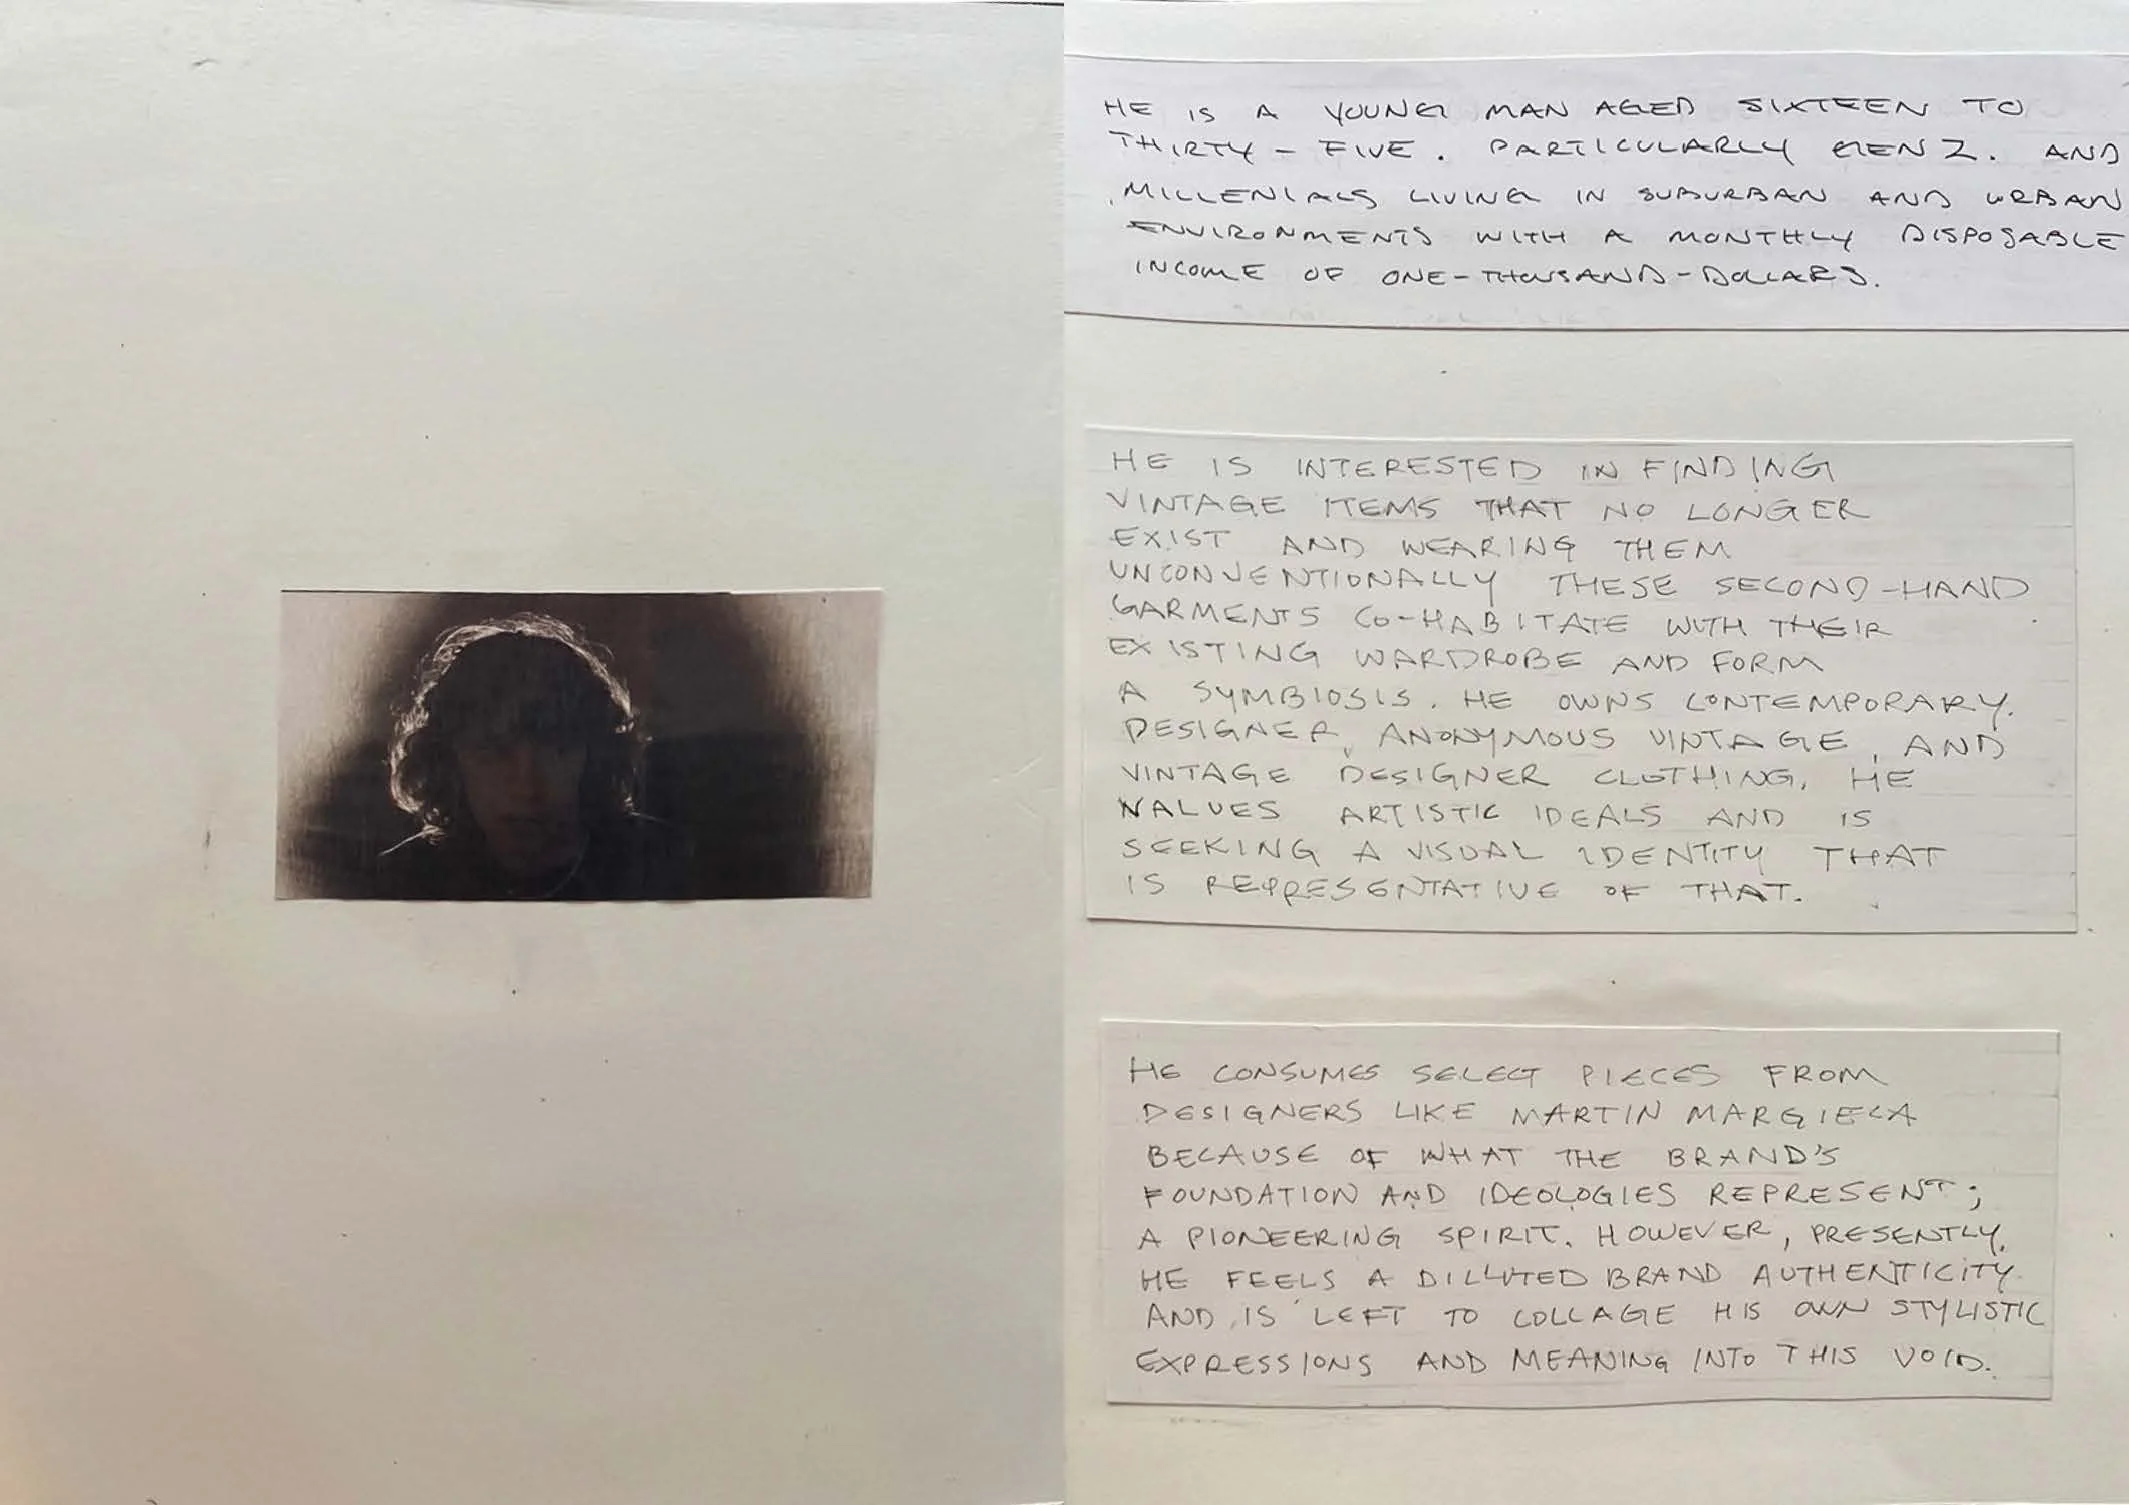 HE IS A YOUNG MAN AGED SIXTEEN TO
THIRTY-FIVE. PARTICULARLY GEN Z. AND
MILLENIALS LIVING IN SUBURBAN AND URBAN
ENVIRONMENTS WITH A MONTHLY DISPOSABLE
INCOME OF ONE-THOUSAND-DOLLARS.
HE IS INTERESTED IN FINDING
VINTAGE ITEMS THAT NO LONGER
EXIST AND WEARING THEM
UNCONVENTIONALLY THESE SECOND-HAND
GARMENTS CO-HABITATE WITH THEIR
EXISTING WARDROBE AND FORM
A SYMBIOSIS. HE OWNS CONTEMPORARY.
DESIGNER, ANONYMOUS VINTAGE, AND
VINTAGE DESIGNER CLOTHING. HE
VALUES ARTISTIC IDEALS AND IS
SEEKING A VISUAL IDENTITY THAT
IS REPRESENTATIVE OF THAT.
HE CONSUMES SELECT PIECES FROM
DESIGNERS LIKE MARTIN MARGIELA
BECAUSE OF WHAT THE BRAND'S
FOUNDATION AND IDEOLOGIES REPRESENT;
A PIONEERING SPIRIT. HOWEVER, PRESENTLY,
HE FEELS A DILLUTED BRAND AUTHENTICITY
AND IS LEFT TO COLLAGE HIS OWN STYLISTIC
EXPRESSIONS AND MEANING INTO THIS VOID.